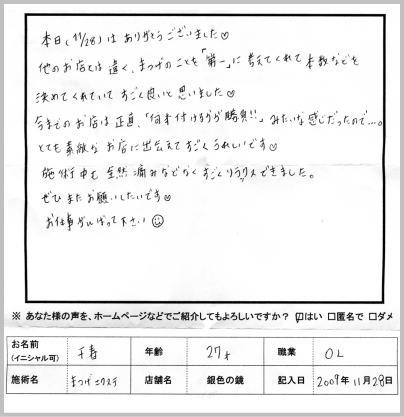 本日(11/28)はありがとうございました♡
他のお店とは違く、まつげのことを「第一」に考えてくれて本数などを
決めてくれていてすごく良いと思いました♡
今までのお店は正直、「何本付けるかが勝負!!」みたいな感じだったので…。
とても素敵なお店に出会えてすごくうれしいです♡
施術中も全然痛みなどなくすごくリラックスできました。
ぜひまたお願いしたいです♡
お仕事がんばって下さい☺
※ あなた様の声を、ホームページなどでご紹介してもよろしいですか？ ☑はい □匿名で □ダメ
お名前 (イニシャル可) 千春 年齢 27才 職業 OL
施術名 まつげエクステ 店舗名 銀色の鏡 記入日 2009年11月28日